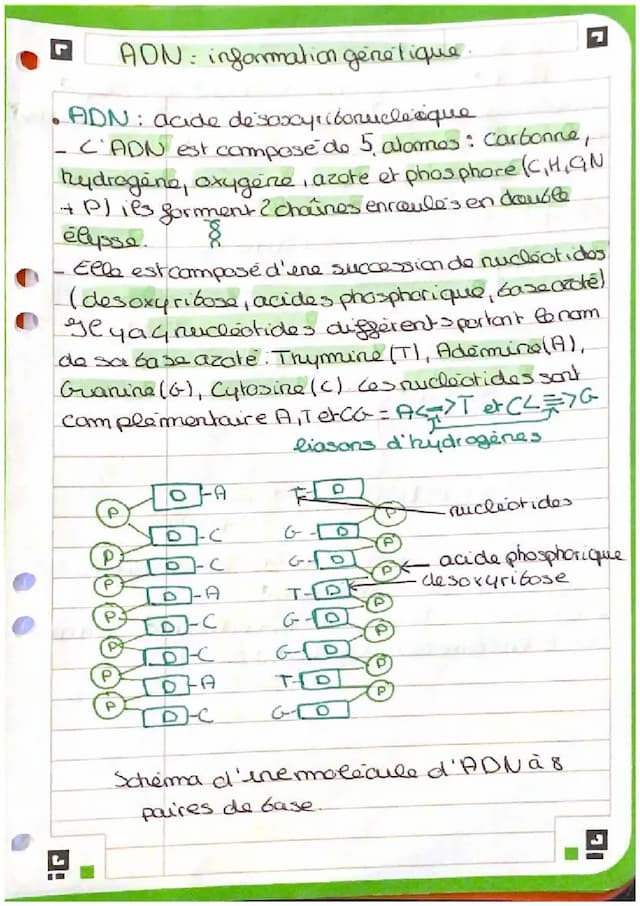 ADN : information génétique.
• ADN : acide désoxyribonucléique
- L'ADN est composé de 5 atomes : Carbonne,
hydrogène, oxygène, azote et phosphore (C, H, O, N
+ P) ils forment 2 chaînes enroulés en double
élysse.
- Elle est composé d'une succession de nucléotides
(desoxyribose, acides phosphorique, base azoté)
Il y a 4 nucléotides différents portant le nom
de sa base azoté : Thymine (T), Adémine (A),
Guanine (G), Cytosine (C) Les nucléotides sont
complémentaire A, T et CG = A<=>T et C<≡>G
liasons d'hydrogènes
P D-A T-D P nucléotides
P D-C G-D P
P D-C G-D P acide phosphorique
P D-A T-D P desoxyribose
P D-C G-D P
P D-C G-D P
P D-A T-D P
P D-C G-D
Schéma d'une molécule d'ADN à 8
paires de base.